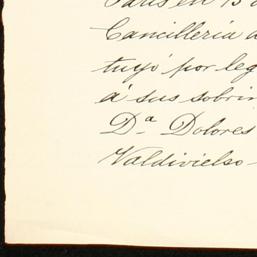 Paris en 15 d
Cancillería d
tuyó por leg
á sus sobrin
D.ª Dolores
Valdivielso-